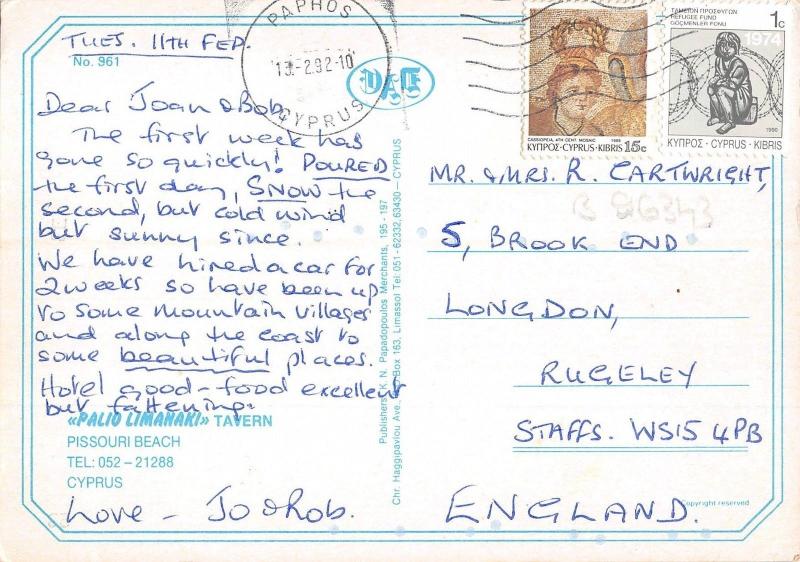 TUES. 11TH FEB.
No. 961
PAPHOS
13-2.92-10
CYPRUS
Dear Joan & Bob,
The first week has
gone so quickly! POURED
the first day, SNOW the
second, but cold wind
but sunny since.
We have hired a car for
2 weeks so have been up
to some mountain villages
and along the coast to
some beautiful places.
Hotel good - food excellent
but fattening.
«PALIO LIMANAKI» TAVERN
PISSOURI BEACH
TEL: 052 – 21288
CYPRUS
Love - Jo & Rob.
Publishers: K. N. Papadopoulos Merchants, 195 - 197
Chr. Haggipavlou Ave., Box 163, Limassol Tel: 051 - 62332, 63430 – CYPRUS
CASSIOPEIA, 4TH CENT. MOSAIC 1989
ΚΥΠΡΟΣ·CYPRUS·KIBRIS 15c
ΤΑΜΕΙΟΝ ΠΡΟΣΦΥΓΩΝ
REFUGEE FUND
GÖÇMENLER FONU
1c
1974
1990
ΚΥΠΡΟΣ · CYPRUS · KIBRIS
MR. & MRS. R. CARTWRIGHT,
5, BROOK END
LONGDON,
RUGELEY
STAFFS. WS15 4PB
ENGLAND.
Copyright reserved